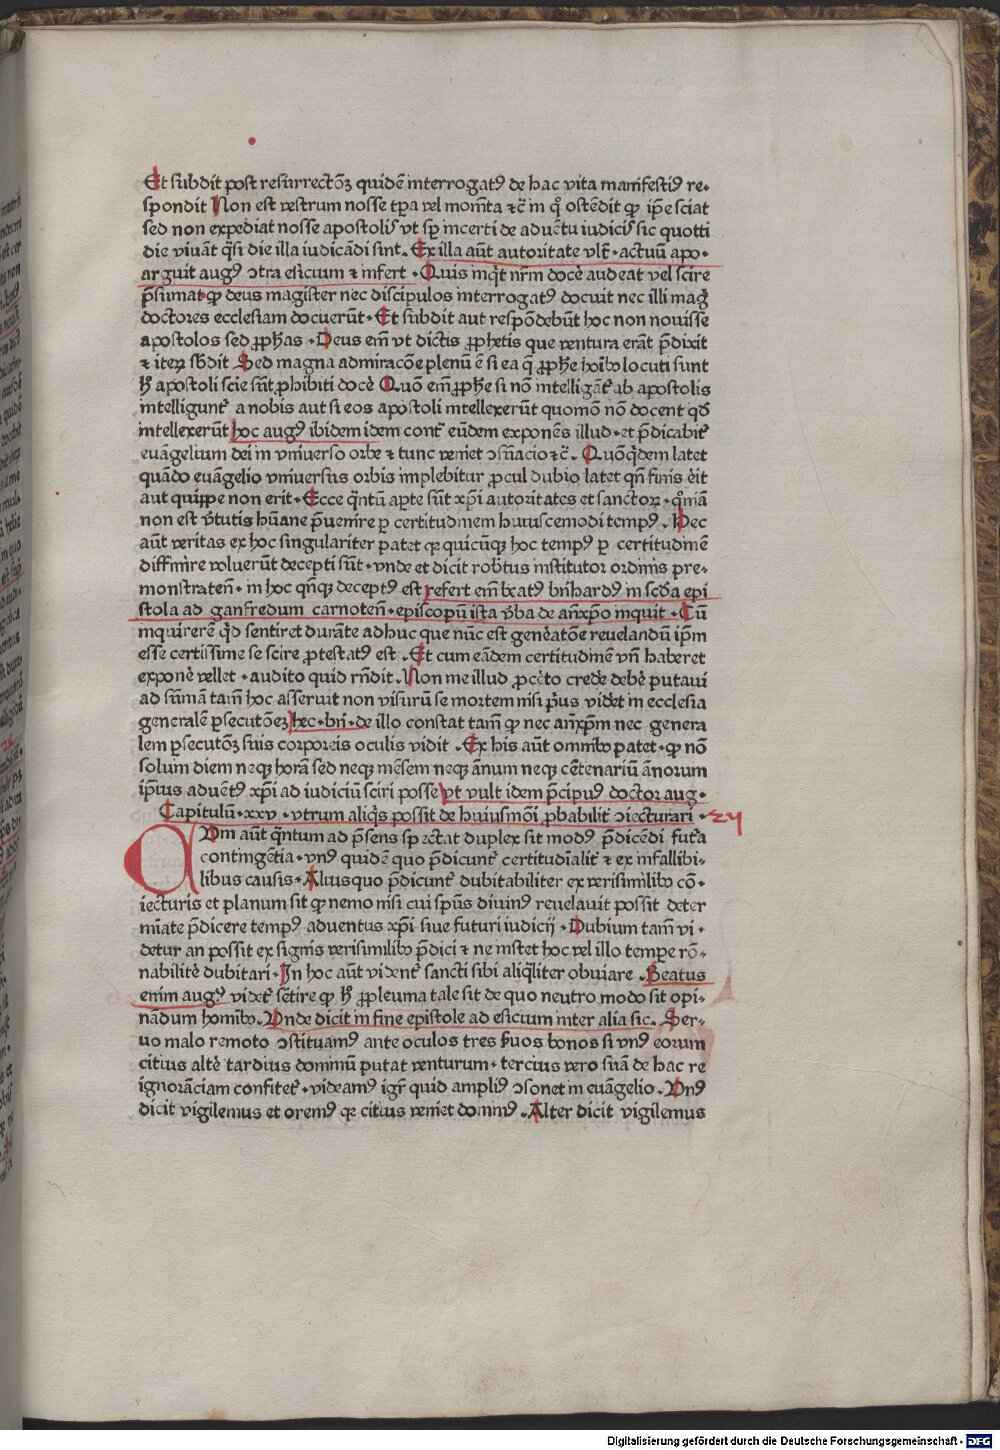 Et subdit post resurrectõꝫ quidē interrogatꝰ de hac vita manifestiꝰ re⸗
spondit Non est vestrum nosse tp̄a vel momēta ⁊c̄ in qͦ ostēdit ꝙ ip̄e sciat
sed non expediat nosse apostolis vt sꝑ incerti de aduētu iudicis sic quotti
die viuāt qͣsi die illa iudicādi sint. Ex illa aūt autoritate vlt̄ · actuū apo⸗
arguit augꝰ ↄtra esicium ⁊ infert · Quis inqͥt nr̄m docē audeat vel scire
p̄sumat ꝙ deus magister nec discipulos interrogatꝰ docuit nec illi magͥ
doctores ecclesiam docuerūt · Et subdit aut respōdebūt hoc non nouisse
apostolos sed ꝓphās · Deus em̄ vt dictis ꝓphetis que ventura erāt p̄dixit
⁊ iteꝝ sb̄dit Sed magna admiracōe plenū ē si ea q̄ ꝓphē hoībꝰ locuti sunt
hͦ apostoli scie sūt ꝓhibiti docē Quō em̄ ꝓphē si nō intelligāt̄ ab apostolis
intelligunt̄ a nobis aut si eos apostoli intellexerūt quomō nō docent qd̄
intellexerūt hoc augꝰ ibidem idem cont̄ eūdem exponēs illud · et p̄dicabit̄
euāgelium dei in vniuerso orbe ⁊ tunc veniet ↄsūacio ⁊c̄. Quōqͥdem latet
quādo euāgelio vniuersus orbis implebitur ꝓcul dubio latet qn̄ finis ēit
aut quippe non erit · Ecce qͣntū aꝑte sūt xp̄i autoritates et sanctoꝝ · qͦniā
non est v̄tutis hūane p̄uenire ꝑ certitudinem huiuscemodi tempꝰ. Hec
aūt veritas ex hoc singulariter patet qꝛ quicūqꝫ hoc tempꝰ ꝑ certitudinē
diffinīre voluerūt decepti sūt · vnde et dicit rob̄tus institutor ordinis pre⸗
monstraten̄ · in hoc qn̄qꝫ deceptꝰ est refert em̄ bt̄atꝰ bn̄hardꝰ in scd̄a epi
stola ad ganfredum carnoteñ · episcopū ista v̄ba de añxp̄o inquit · Cū
inquirerē qͥd sentiret durāte adhuc que nūc est genēatōe reuelandū ip̄m
esse certissime se scire ꝓtestatꝰ est. Et cum eādem certitudinē vn̄ haberet
exponē vellet · audito quid rn̄dit. Non me illud ꝓ cēto credē debē putaui
ad sūmā tam̄ hoc asseruit non visurū se mortem nisi pͥus vidēt in ecclesia
generalē ꝑsecutōeꝫ hec · brn̄ · de illo constat tam̄ ꝙ nec anxp̄m nec genera
lem ꝑsecutōꝫ suis corporeis oculis vidit. Ex his aūt omnibꝰ patet · ꝙ nō
solum diem neqꝫ horā sed neqꝫ mēsem neqꝫ annum neqꝫ cētenariū ānorum
ip̄ius aduētꝰ xp̄i ad iudiciū sciri posse vt vult idem p̄cipuꝰ doctor aug·
Capitulū · xxv · vtrum aliqͥs possit de huiusmōi ꝓbabilit̄ ↄiecturari · 24
QVm aūt qͣntum ad p̄sens spectat duplex sit modꝰ p̄dicēdi futͣa
contingētia · vnꝰ quidē quo p̄dicunt̄ certitudīalit̄ ⁊ ex infallibi⸗
libus causis · Aliusquo p̄dicunt̄ dubitabiliter ex verisimilibꝰ cō⸗
iecturis et planum sit ꝙ nemo nisi cui spūs diuinꝰ reuelauit possit deter
mīate p̄dicere tempꝰ aduentus xp̄i siue futuri iudicij · Dubium tam̄ vi⸗
detur an possit ex signis verisimilibꝰ p̄dici ⁊ ne instet hoc vel illo tempe rō⸗
nabilitē dubitari · In hoc aūt vident̄ sancti sibi aliqͣliter obuiare. Beatus
enim augꝰ videt̄ sētire ꝙ hͦ ꝓpleuma tale sit de quo neutro modo sit opi⸗
nādum homībꝰ. Vnde dicit in fine epistole ad esicium inter alia sic. Ser⸗
uo malo remoto ↄstituamꝰ ante oculos tres s̄uos bonos si vnꝰ eorum
citius altē tardius dominū putat venturum · tercius vero suā de hac re
ignorāciam confitet̄ · videamꝰ igr̄ quid ampliꝰ ↄsonet in euāgelio. Vnꝰ
dicit vigilemus et oremꝰ qꝛ citius veniet dominꝰ. Alter dicit vigilemus
Digitalisierung gefördert durch die Deutsche Forschungsgemeinschaft - DFG